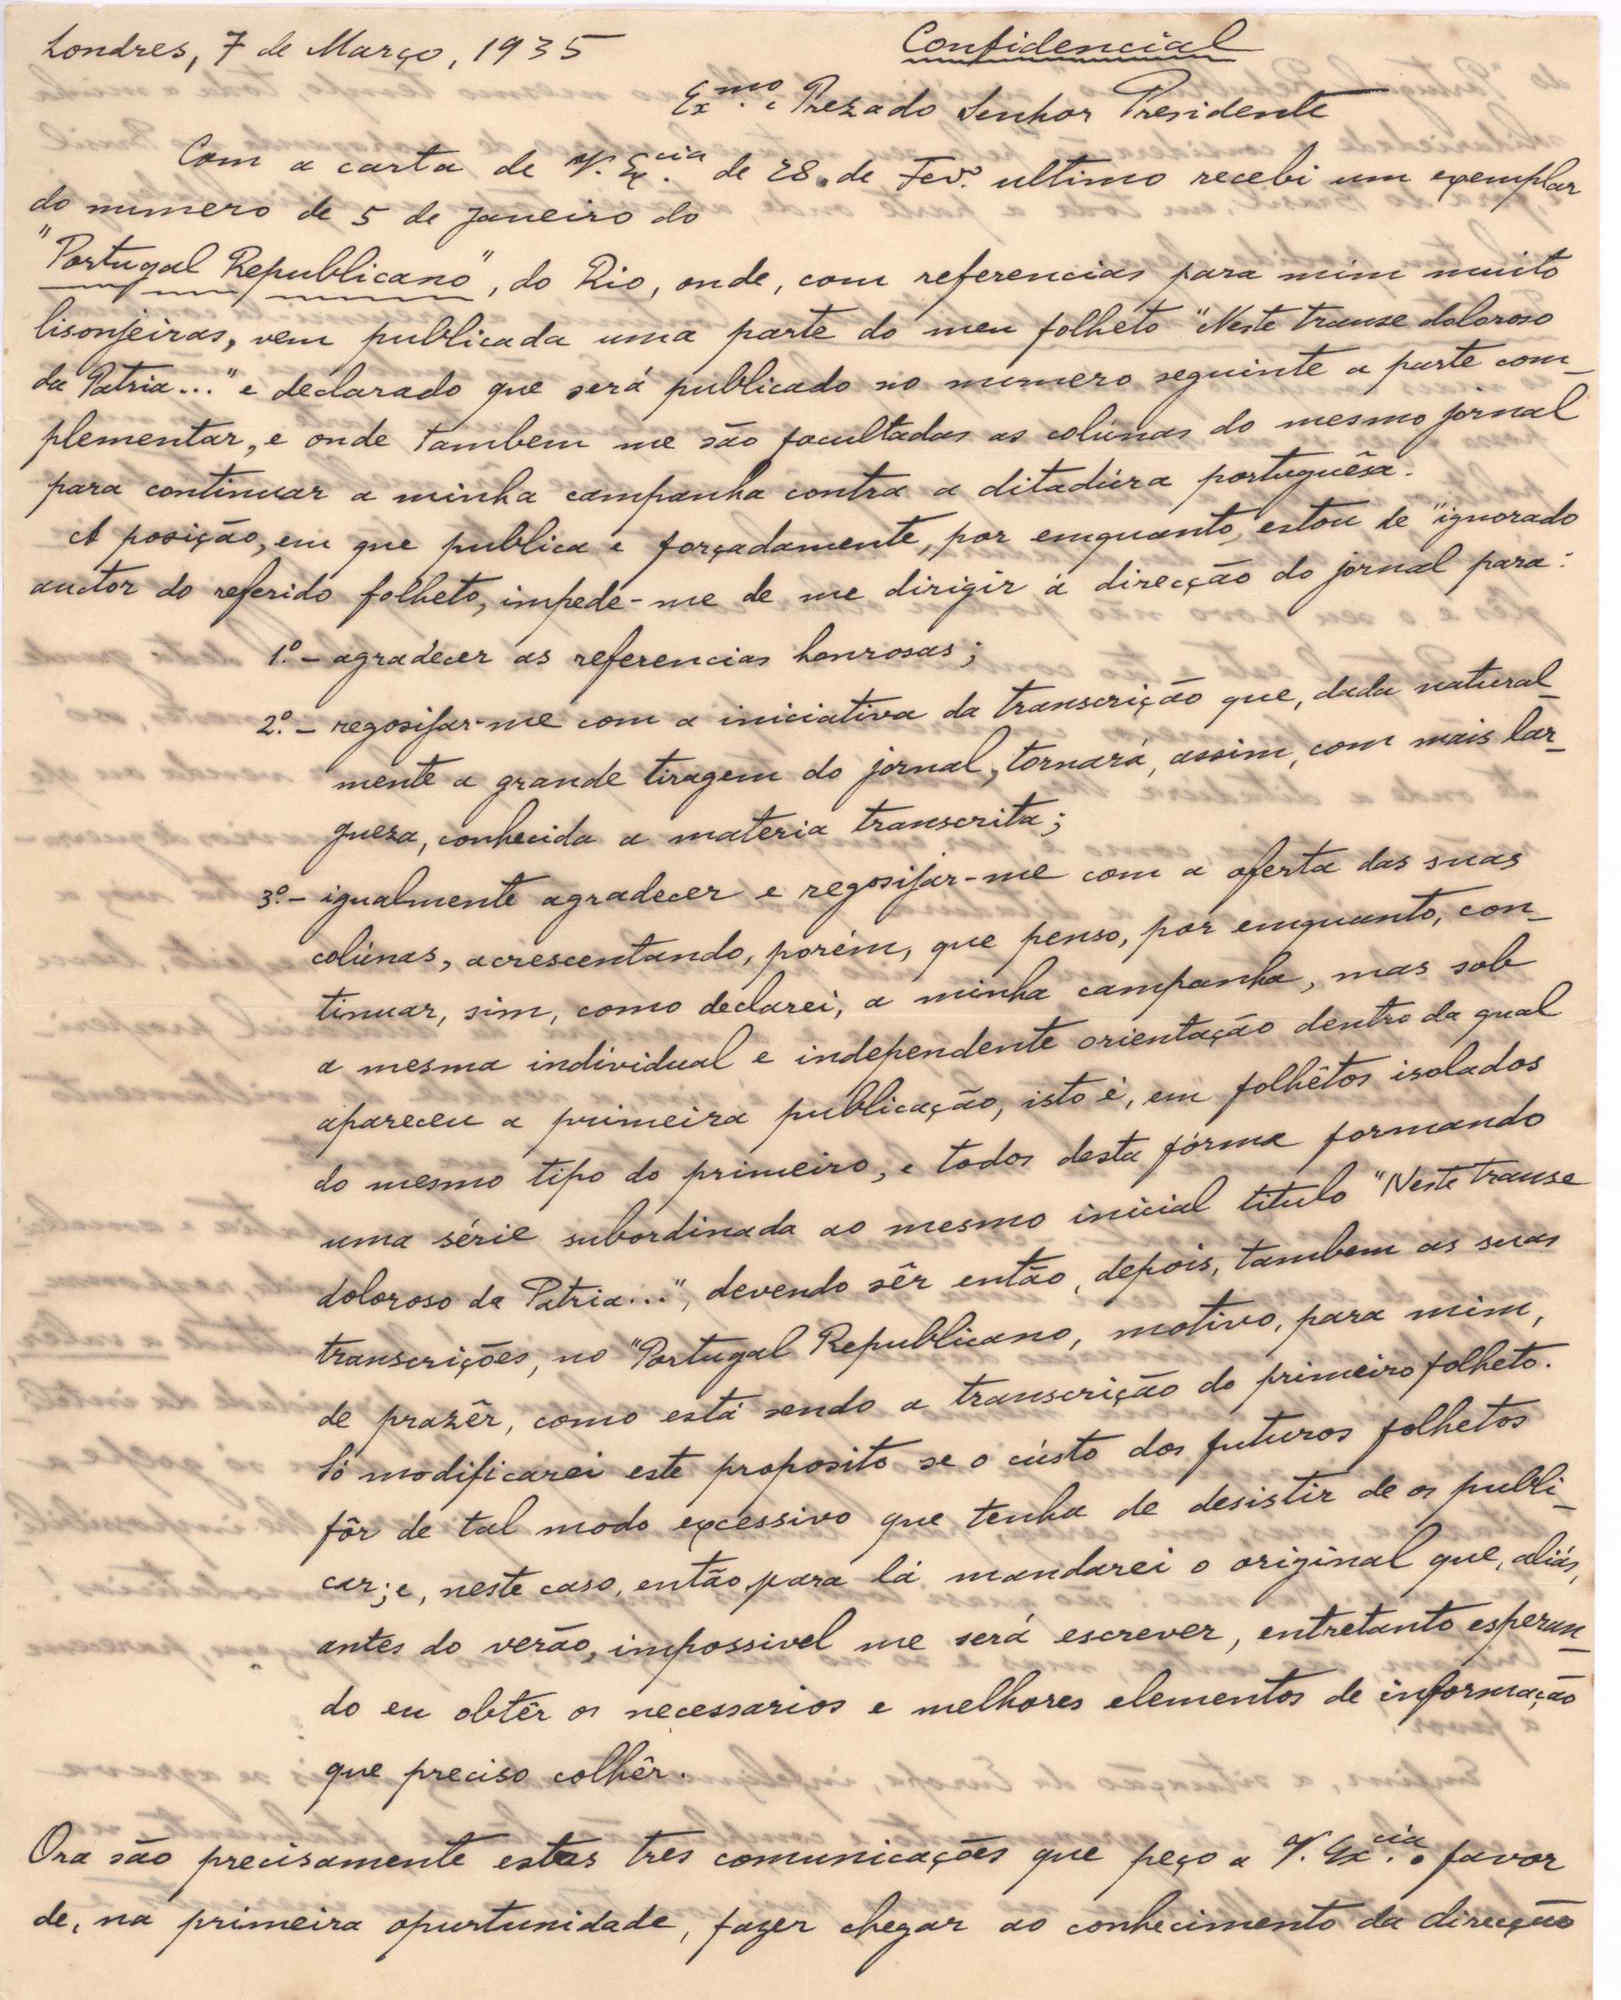 Londres, 7 de Março, 1935
Confidencial
Ex.mo e Prezado Senhor Presidente
Com a carta de V. Ex.cia de 28 de Fev.º ultimo recebi um exemplar
do numero de 5 de Janeiro do
"Portugal Republicano", do Rio, onde, com referencias para mim muito
lisonjeiras, vem publicada uma parte do meu folheto "Neste transe doloroso
da Patria..." e declarado que será publicado no numero seguinte a parte com-
plementar, e onde tambem me são facultadas as colúnas do mesmo jornal
para continuar a minha campanha contra a ditadúra portuguêsa.
A posição, em que publica e forçadamente, por emquanto, estou de "ignorado
auctor do referido folheto, impede-me de me dirigir á direcção do jornal para:
1.º - agradecer as referencias honrosas;
2.º - regosijar-me com a iniciativa da transcrição que, dada natural-
mente a grande tiragem do jornal, tornará, assim, com mais lar-
gueza, conhecida a materia transcrita;
3.º - igualmente agradecer e regosijar-me com a oferta das suas
colúnas, acrescentando, porém, que penso, por emquanto, con-
tinuar, sim, como declarei, a minha campanha, mas sob
a mesma individual e independente orientação dentro da qual
apareceu a primeira publicação, isto é, em folhêtos isolados
do mesmo tipo do primeiro, e todos desta fórma formando
uma série subordinada ao mesmo inicial titulo "Neste transe
doloroso da Patria...", devendo sêr então, depois, tambem as suas
transcrições, no "Portugal Republicano, motivo, para mim,
de prazêr, como está sendo a transcrição do primeiro folheto.
Só modificarei este proposito se o cústo dos futuros folhetos
fôr de tal modo excessivo que tenha de desistir de os publi-
car; e, neste caso, então, para lá mandarei o original que, aliás,
antes do verão, impossivel me será escrever, entretanto esperan-
do eu obtêr os necessarios e melhores elementos de informação
que preciso colhêr.
Ora são precisamente estas tres comunicações que peço a V. Ex.cia o favor
de, na primeira opurtunidade, fazer chegar ao conhecimento da direcção